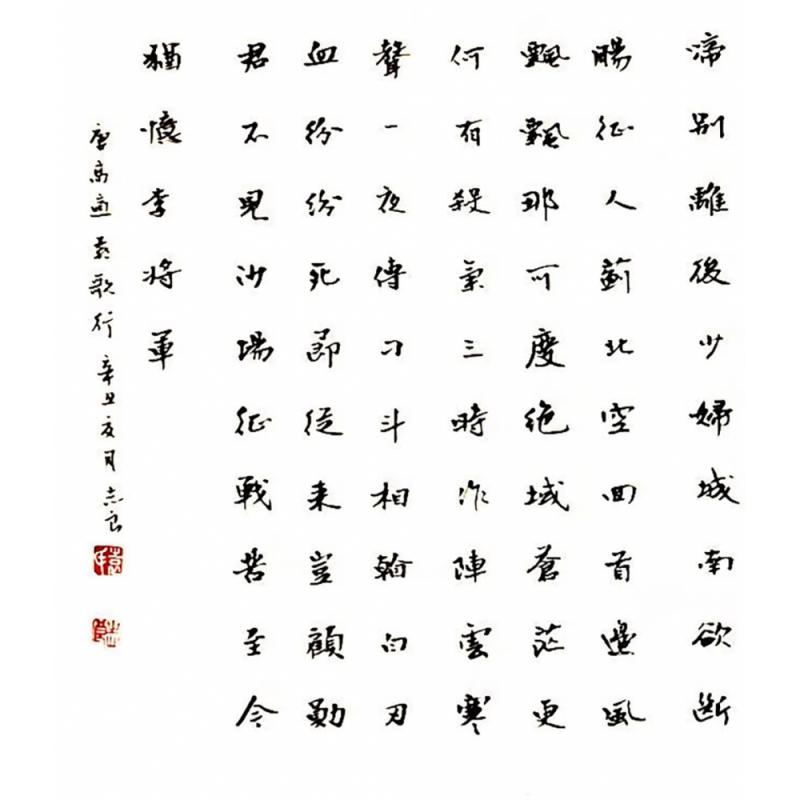 啼别離後少婦城南欲断
腸征人薊北空回首邊風
飄飄那可度絕域蒼茫更
何有殺氣三時作陣雲寒
聲一夜傳刁斗相看白刃
血紛紛死節從来豈顧勳
君不見沙場征戰苦至今
猶憶李將軍
唐高適燕歌行辛丑夏月志良